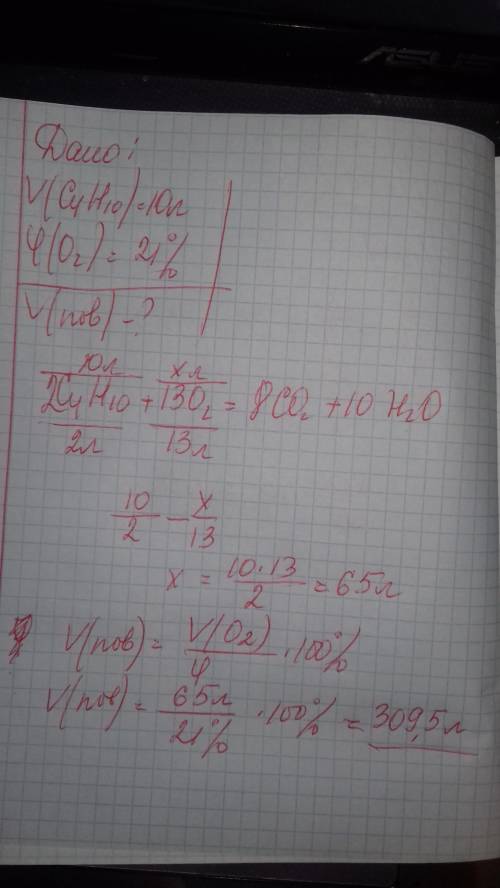 ASUS
Дано:
V(C4H10)=10л
φ(O2)= 21%
V(пов) -?
10л xл
2C4H10 + 13O2 = 8CO2 + 10 H2O
2л 13л
10/2 – x/13
x = 10·13/2 = 65л
V(пов)= V(O2)/φ ·100%
V(пов)= 65л/21% ·100% = 309,5л